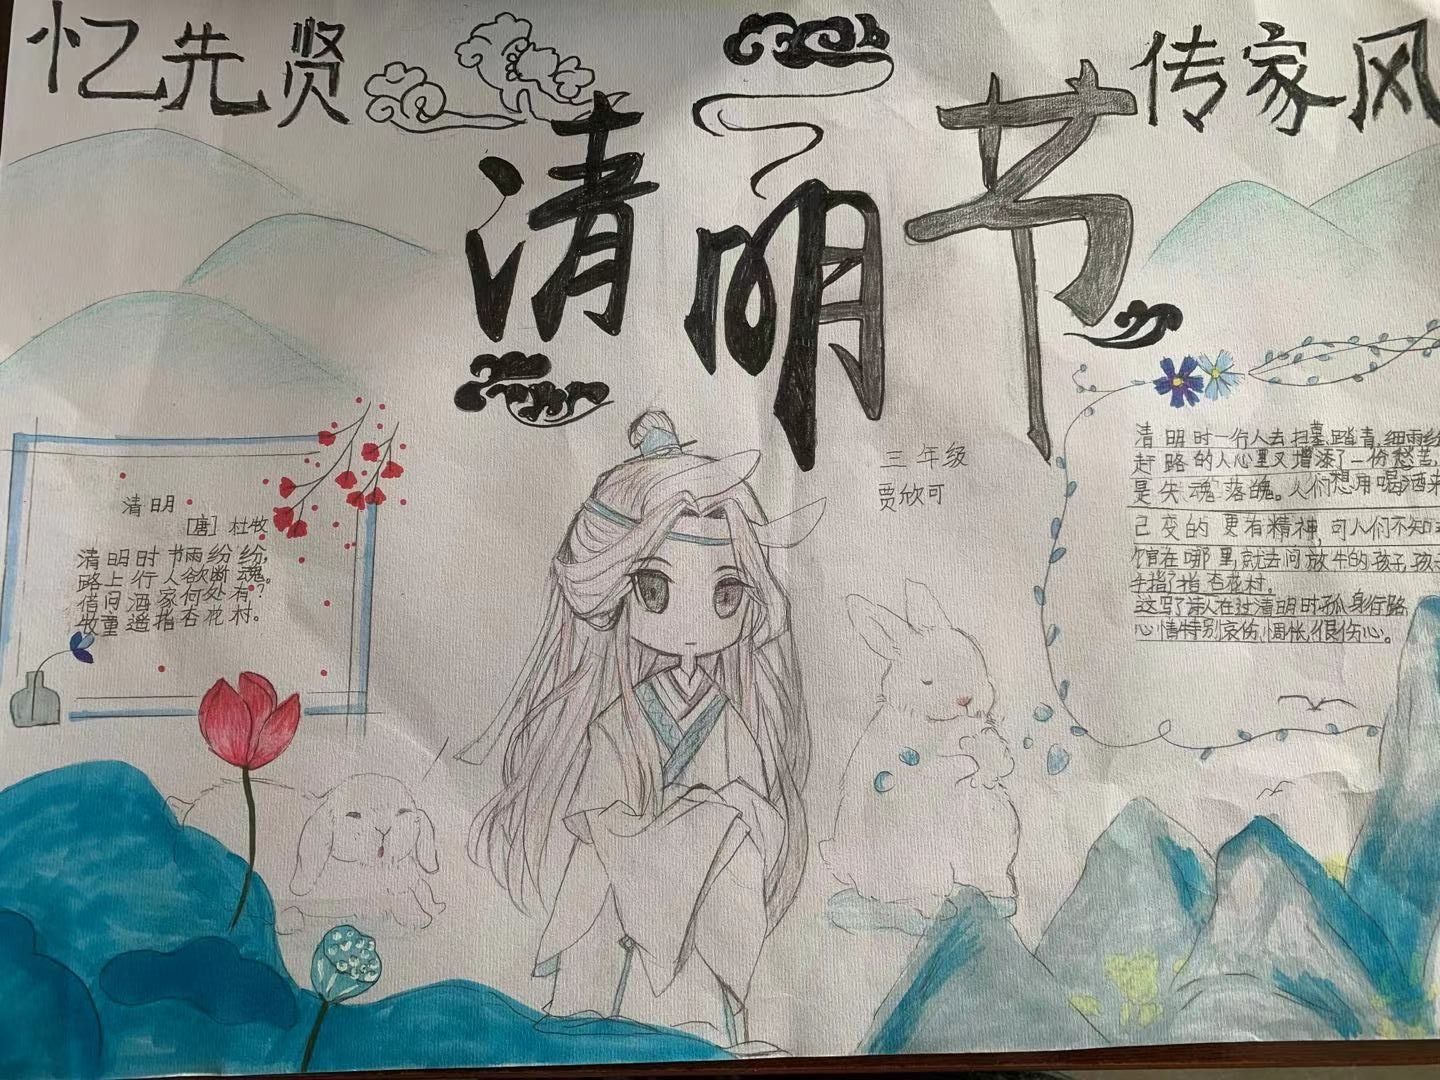 忆先贤
清明节
传家风
三年级
贾欣可
清明
[唐] 杜牧
清明时节雨纷纷,
路上行人欲断魂。
借问酒家何处有?
牧童遥指杏花村。
清明时一行人去扫墓,踏青,细雨纷
赶路的人心里又增添了一份愁苦,
是失魂落魄。人们想用喝酒来
己变的更有精神,可人们不知
馆在哪里,就去问放牛的孩子,孩子
手指了指杏花村。
这写了诗人在过清明时孤身行路,
心情特别哀伤,惆怅,很伤心。